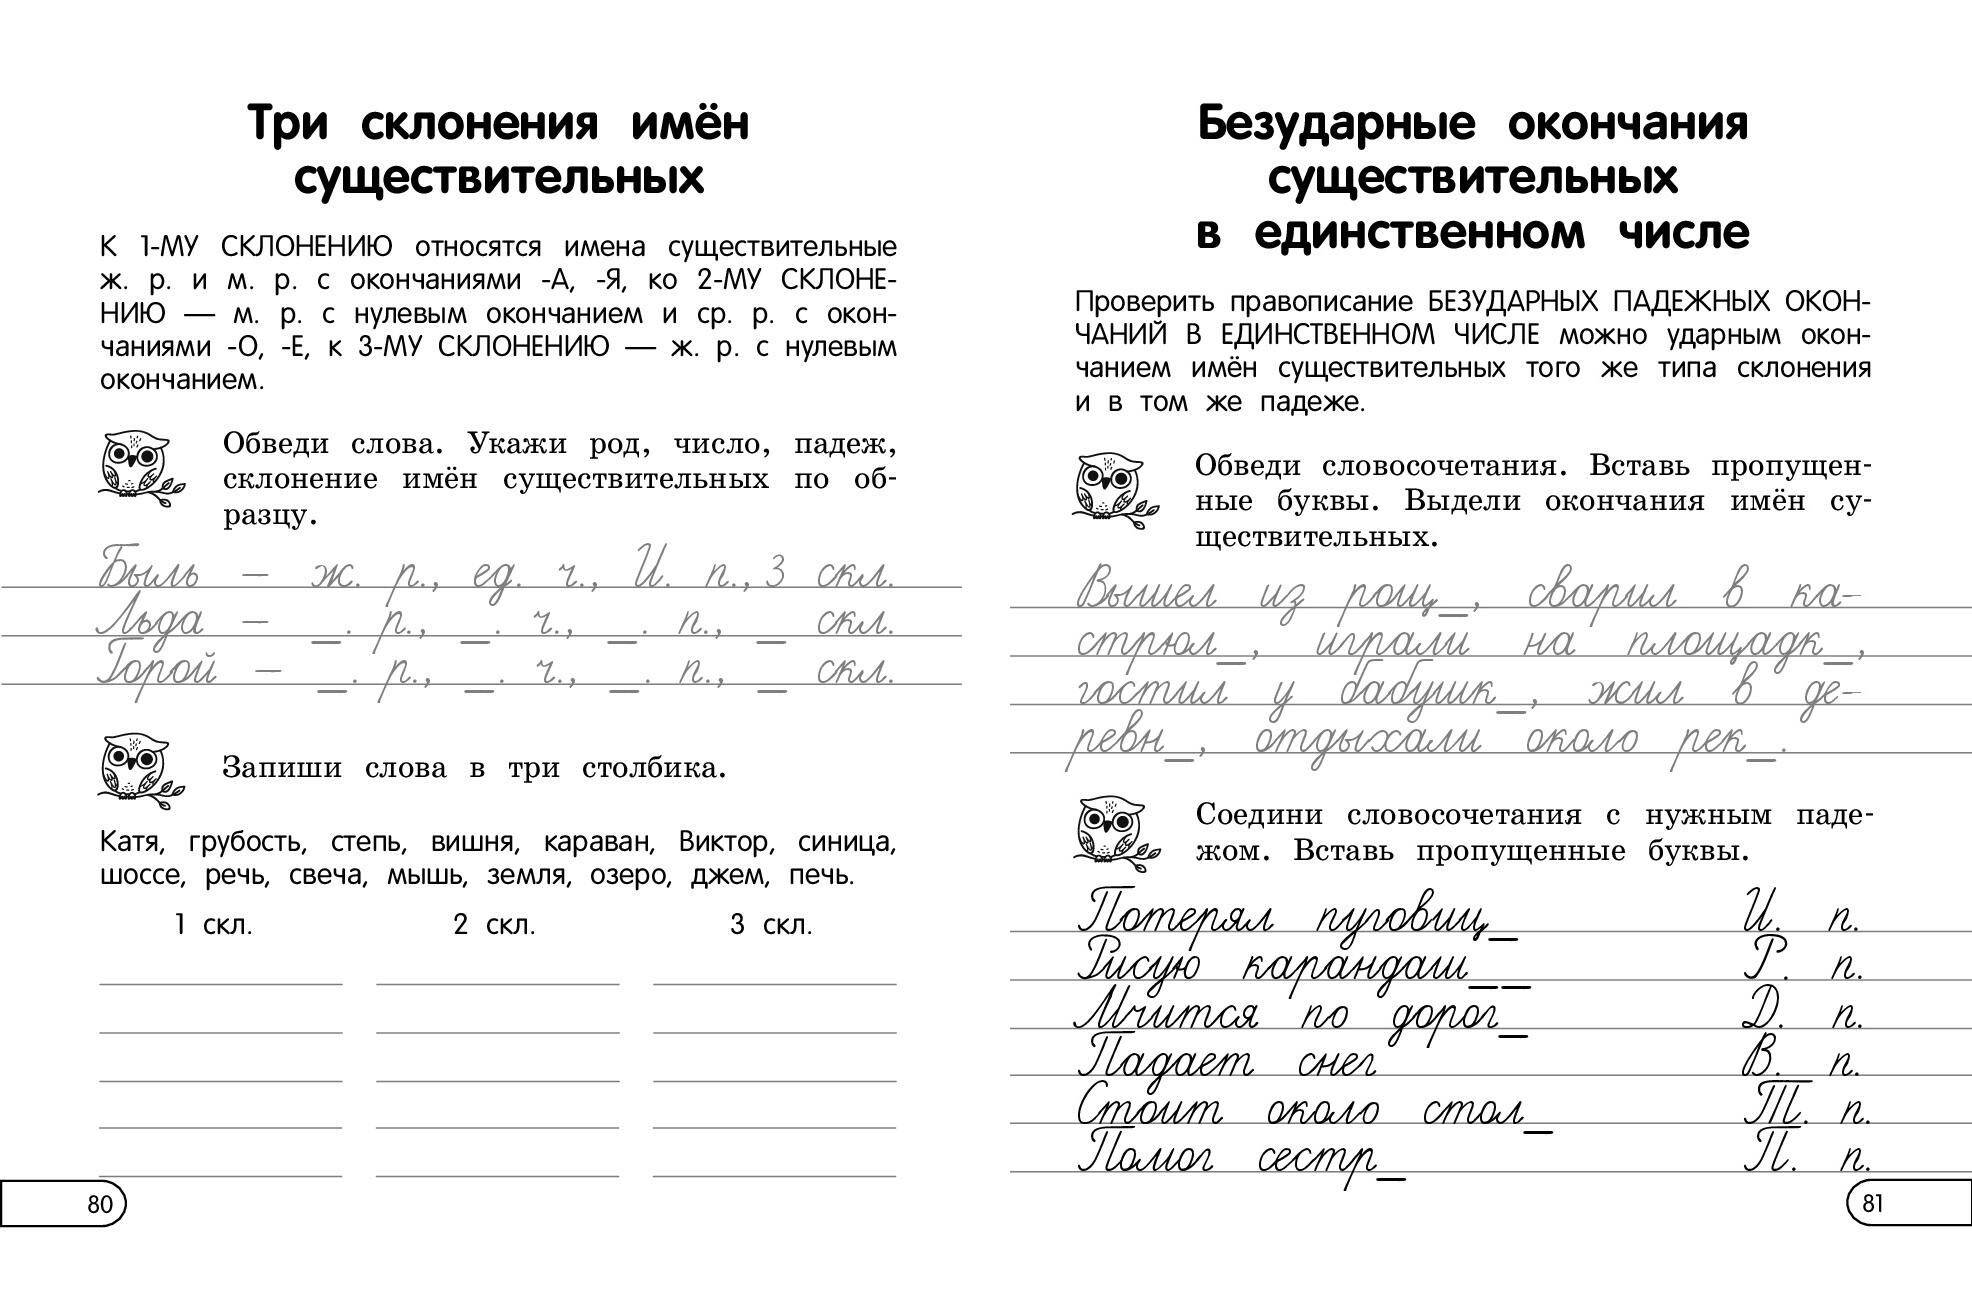 Три склонения имён
существительных
К 1-МУ СКЛОНЕНИЮ относятся имена существительные
ж. р. и м. р. с окончаниями -А, -Я, ко 2-МУ СКЛОНЕ-
НИЮ — м. р. с нулевым окончанием и ср. р. с окон-
чаниями -О, -Е, к 3-МУ СКЛОНЕНИЮ — ж. р. с нулевым
окончанием.
Обведи слова. Укажи род, число, падеж,
склонение имён существительных по об-
разцу.
Быль — ж. р., ед. ч., И. п., 3 скл.
Льда — _. р., _. ч., _. п., _ скл.
Горой — _. р., _. ч., _. п., _ скл.
Запиши слова в три столбика.
Катя, грубость, степь, вишня, караван, Виктор, синица,
шоссе, речь, свеча, мышь, земля, озеро, джем, печь.
1 скл. 2 скл. 3 скл.
80
Безударные окончания
существительных
в единственном числе
Проверить правописание БЕЗУДАРНЫХ ПАДЕЖНЫХ ОКОН-
ЧАНИЙ В ЕДИНСТВЕННОМ ЧИСЛЕ можно ударным окон-
чанием имён существительных того же типа склонения
и в том же падеже.
Обведи словосочетания. Вставь пропущен-
ные буквы. Выдели окончания имён су-
ществительных.
Вышел из рощ_, сварил в ка-
стрюл_, играли на площадк_,
гостил у бабушк_, жил в де-
ревн_, отдыхали около рек_.
Соедини словосочетания с нужным паде-
жом. Вставь пропущенные буквы.
Потерял пуговиц_ И. п.
Рисую карандаш__ Р. п.
Мчится по дорог_ Д. п.
Падает снег В. п.
Стоит около стол_ Т. п.
Помог сестр_ П. п.
81